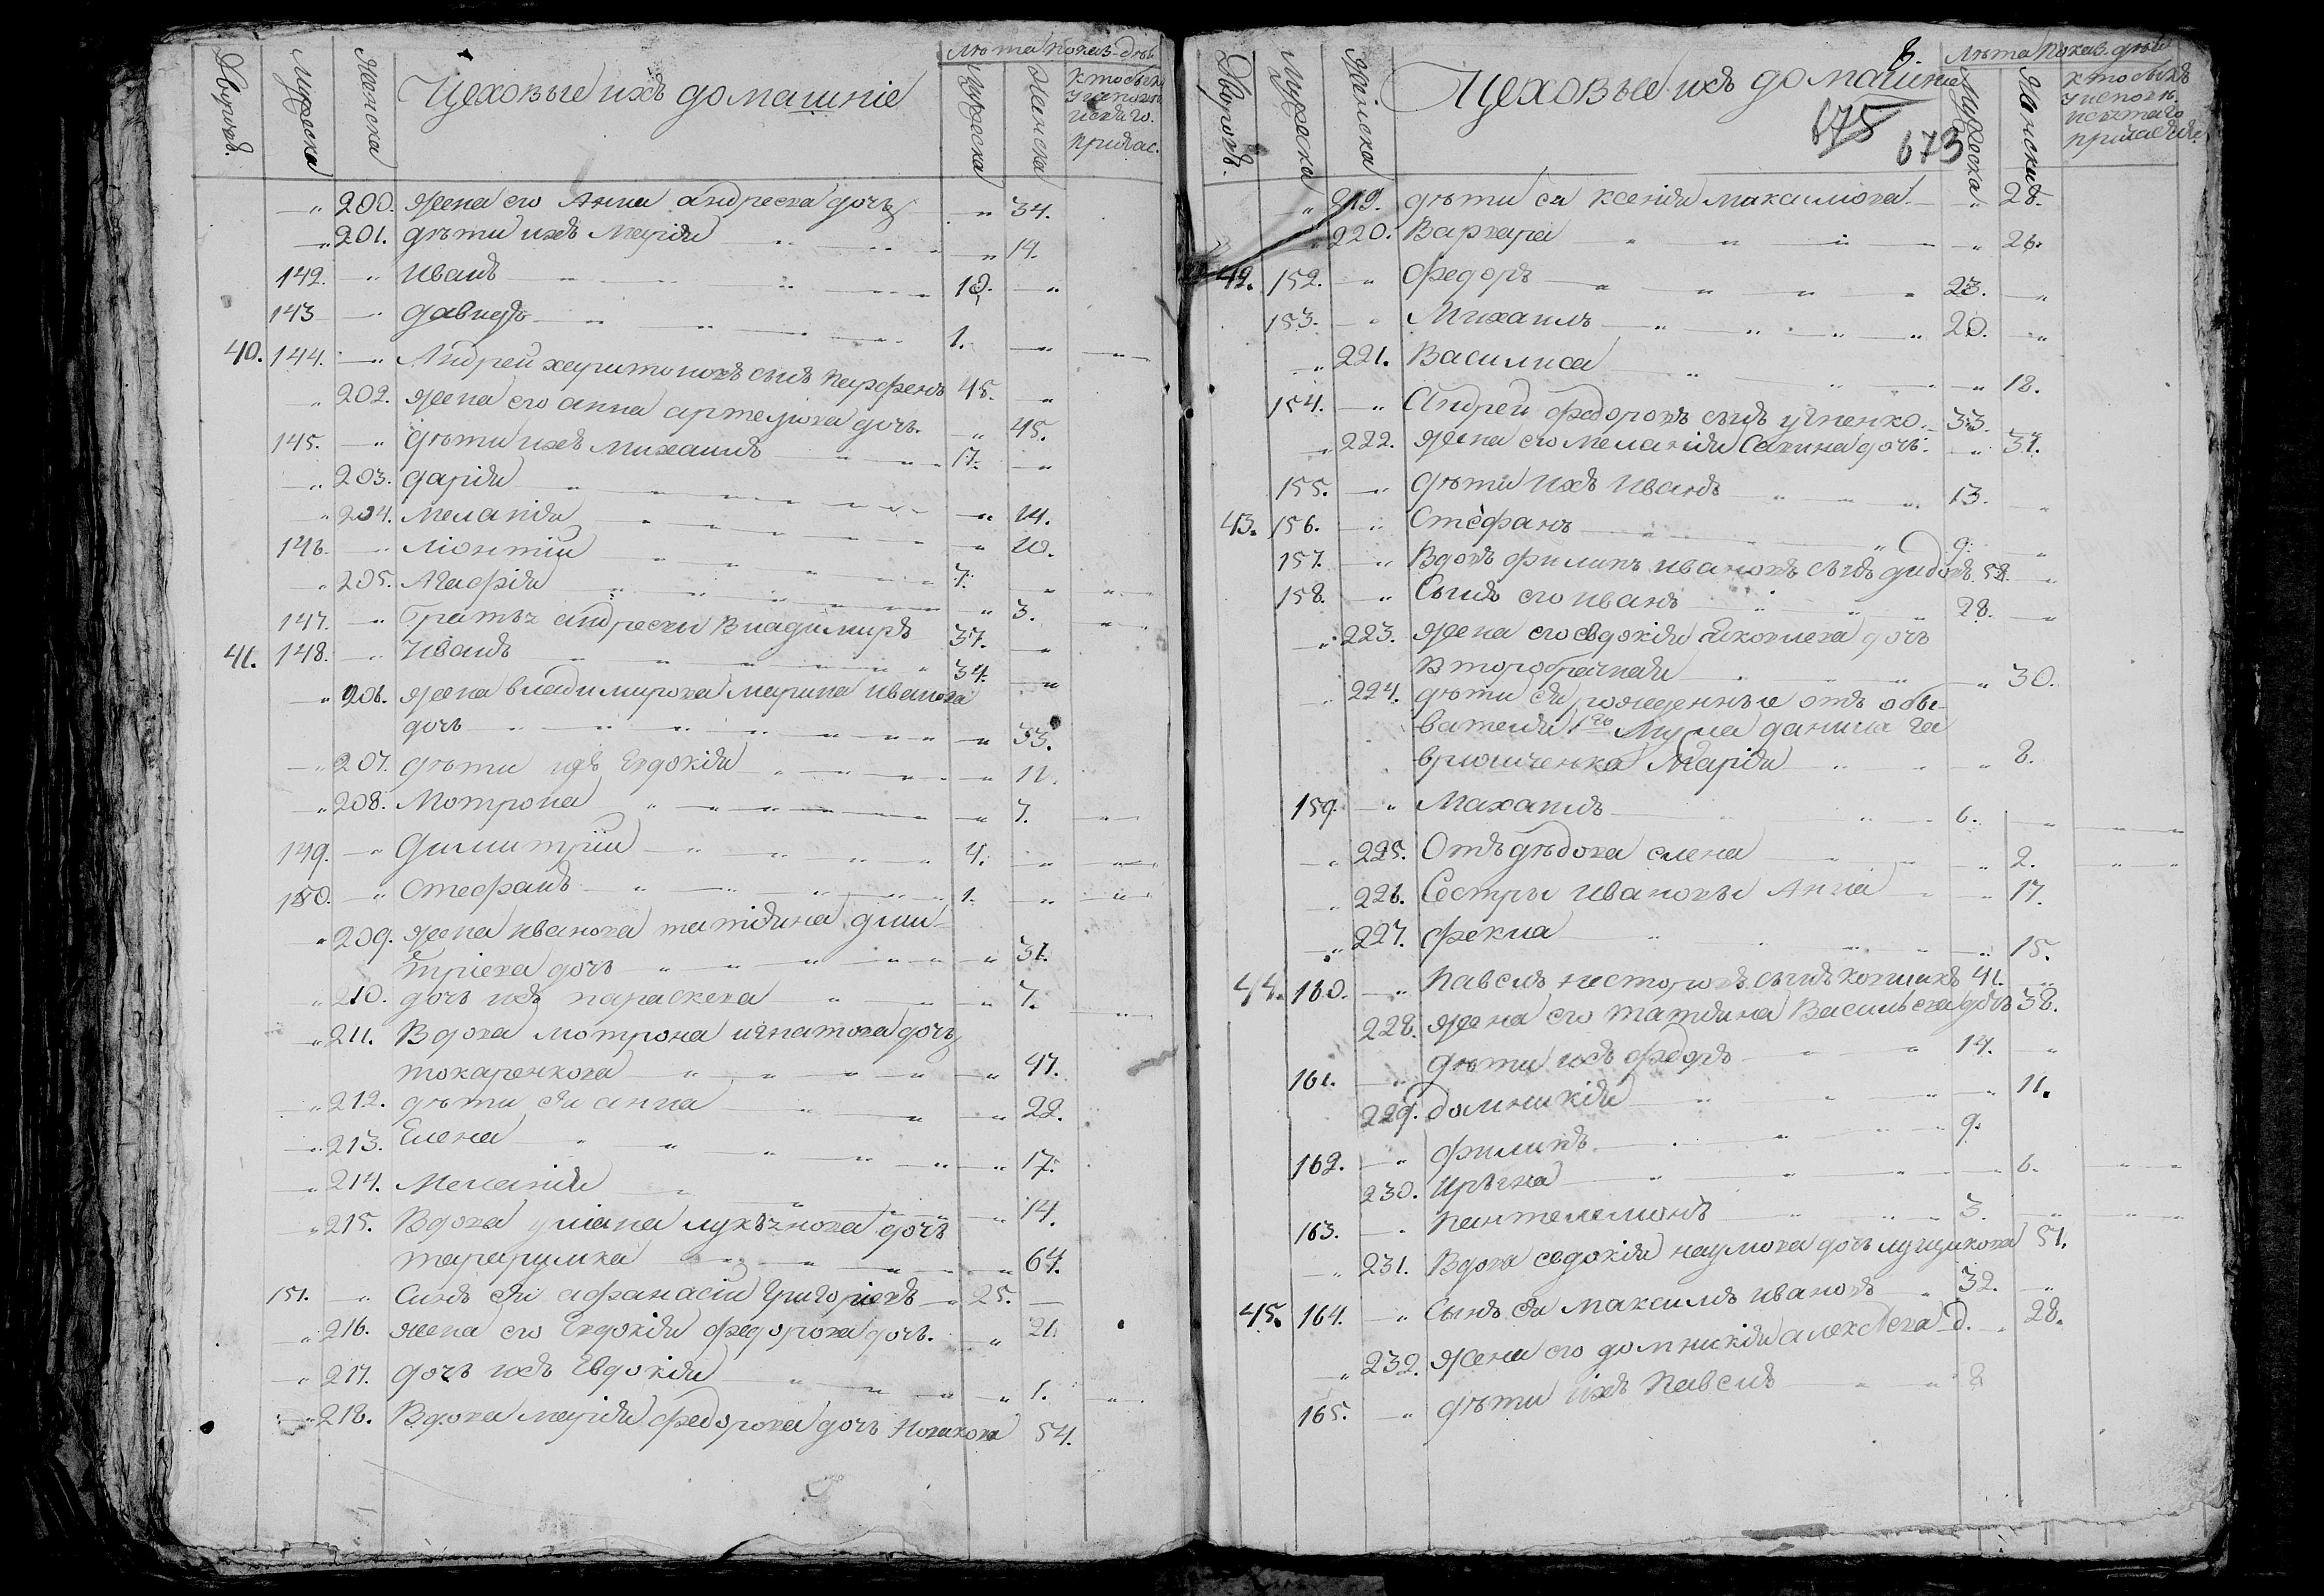 Дворовъ.
Мужеска
Женска
Цеховые ихъ домашніе
Мужеска
Женска
200. жена его Анна андреева дочь 34.
201. дѣти ихъ Марія 14.
142. Иванъ 10.
143 давидъ 1.
40. 144. Андрей харитоновъ сынъ Парфенъ 45.
202. жена его анна артемова дочь. 45.
145. дѣти ихъ Михаилъ 17.
203. дарія 14.
204. Меланія 10.
146.Ліонтій 7.
205. Агафія 3.
147. Братья андреевы Владимиръ 37.
41. 148. Иванъ 34.
206. жена владимирова Марина иванова
дочь 33.
207. дѣти ихъ Евдокія 11.
208. Мотрона 7.
149. Димитрій 4.
150. Стефанъ 1.
209. жена иванова татіяна дми-
тріева дочь 31.
210. дочь ихъ параскева 7.
211. Вдова мотрона игнатова дочь
токаренкова 47.
212. дѣти ея анна 22.
213. Елена 17.
214. Меланія 14.
215. Вдова уліана лукьянова дочь
64.
151. Синъ ея афанасій Григоріевъ 25.
216. жена его Евдокія федорова дочь. 21.
217. дочь ихъ Евдокія 1.
218. Вдова марія федорова дочь Новакова 54.
8.
Дворовъ.
Мужеска
Женска
Цеховые ихъ домашніе
675
673
Мужеска
Женска
219. дѣти ея ксенія максимова 28.
220. Варвара 26.
42. 152. Федоръ 23.
153. Михаилъ 20.
221. Василиса 18.
154. Андрей федоровъ сынъ 33.
222. жена его меланія Савина дочь: 31.
155. дѣти ихъ Иванъ 13.
43. 156. Стефанъ 9.
157. Вдовъ филипъ ивановъ сынъ дидовъ 52.
158. Сынъ его иванъ 28.
223. жена его евдокія яковлева дочь
второбрачная 30.
224. дѣти ея рожденные отъ обы-
вателя 1го Мужа данила га
вриличенка Марія 8.
159. Махаилъ 6.
225. Отъ дѣдова елена 2.
226. Сестры ивановы Анна 17.
227. фекла 15.
44. 160. Павелъ несторовъ сынъ 41.
228. жена его татіяна Васильева дочь 38.
161. дѣти ихъ федоръ 14.
229. домникія 11.
162. филипъ 9.
230. Ирына 6.
163. Пантелемонъ 3.
231. Вдова евдокія наумова дочь лущикова 51.
45. 164. Сынъ ея максимъ ивановъ 32.
232. жена его домникія алексеева д. 28.
165. дѣти ихъ Павелъ 8